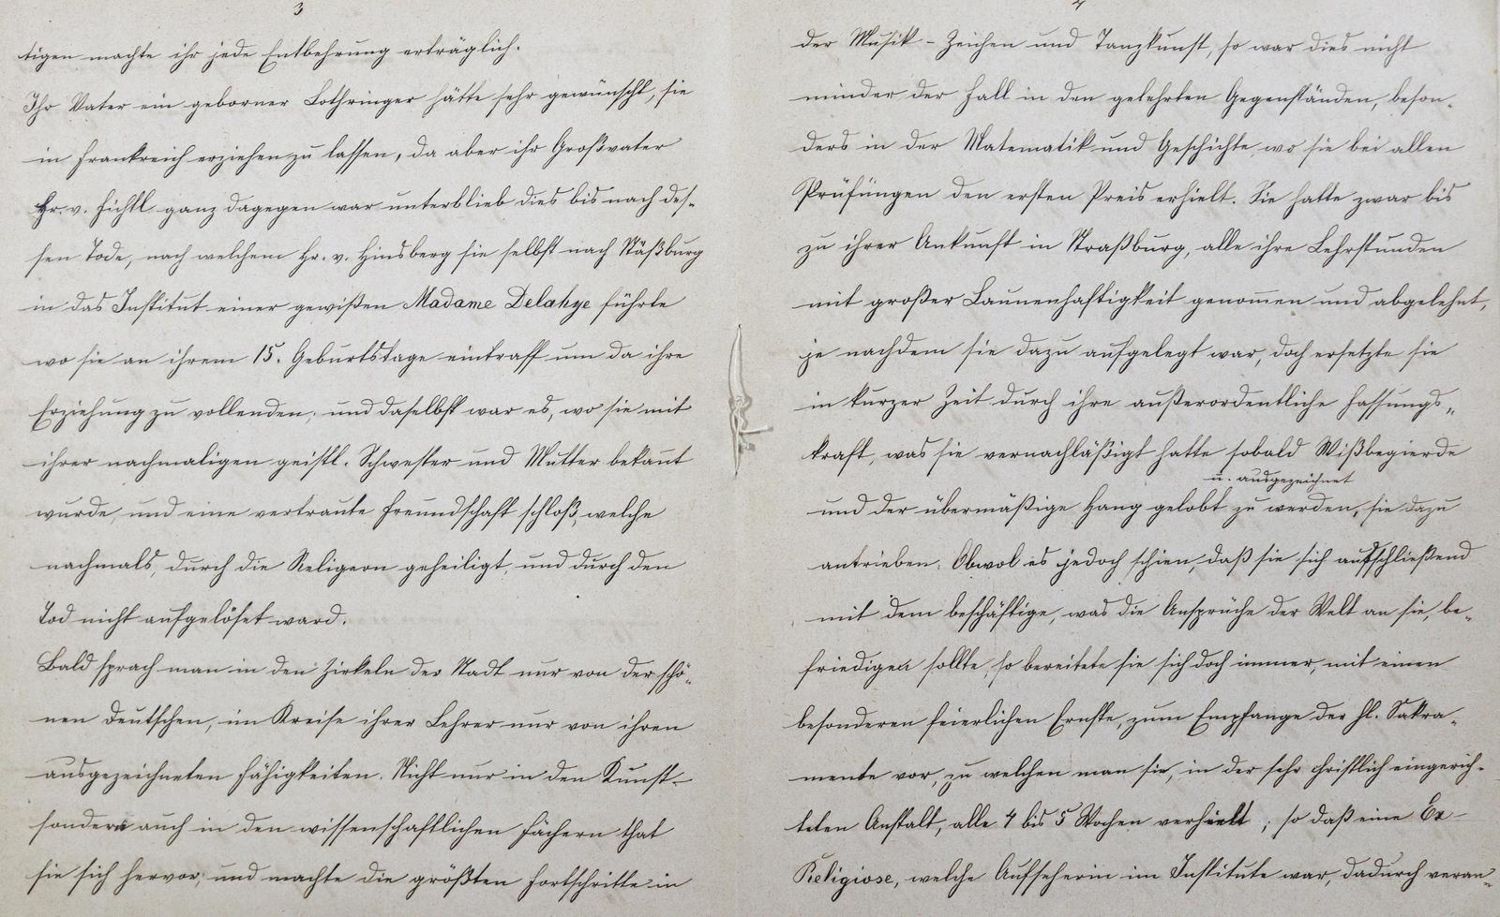 3
tigen machte ihr jede Entbehrung erträglich.
Ihr Vater ein geborner Lothringer hätte sehr gewünscht, sie
in Frankreich erziehen zu lassen, da aber ihr Großvater
Hr. v. Fichtl ganz dagegen war unterblieb dies bis nach des-
sen Tode, nach welchem Hr. v. Hinsberg sie selbst nach Stäßburg
in das Institut einer gewißen Madame Delahye führte
wo sie an ihrem 15. Geburtstage eintraff um da ihre
Erziehung zu vollenden; und daselbst war es, wo sie mit
ihrer nachmaligen geistl. Schwester und Mutter bekañt
wurde, und eine vertraute Freundschaft schloß, welche
nachmals, durch die Religion geheiligt, und durch den
Tod nicht aufgelöset ward.
Bald sprach man in den Zirkeln der Stadt nur von der schö-
nen Deutschen, im Kreise ihrer Lehrer nur von ihren
ausgezeichneten Fähigkeiten. Nicht nur in den Kunst-
sondern auch in den wissenschaftlichen Fächern that
sie sich hervor, und machte die größten Fortschritte in
4
der Musik - Zeichen und Tanzkunst, so war dies nicht
minder der Fall in den gelehrten Gegenständen, beson-
ders in der Matematik und Geschichte wo sie bei allen
Prüfungen den ersten Preis erhielt. Sie hatte zwar bis
zu ihrer Ankunft in Straßburg, alle ihre Lehrstunden
mit großer Launenhaftigkeit genom̄en und abgelehnt,
je nachdem sie dazu aufgelegt war, doch ersetzte sie
in kurzer Zeit durch ihre außerordentliche Fassungs-
kraft, was sie vernachläßigt hatte sobald Wißbegierde
u. ausgezeichnet
und der übermäßige Hang gelobt zu werden, sie dazu
antrieben. Obwol es jedoch schien, daß sie sich ausschließend
mit dem beschäftige, was die Ansprüche der Welt an sie, be-
friedigen sollte, so bereitete sie sich doch immer, mit einen
besonderen feierlichen Ernste, zum Empfange der hl. Sakra-
mente vor, zu welchen man sie, in der sehr christlich eingerich-
teten Anstalt, alle 4 bis 5 Wochen verhielt; so daß eine Ex-
Religiose, welche Aufseherin im Institute war, dadurch veran-